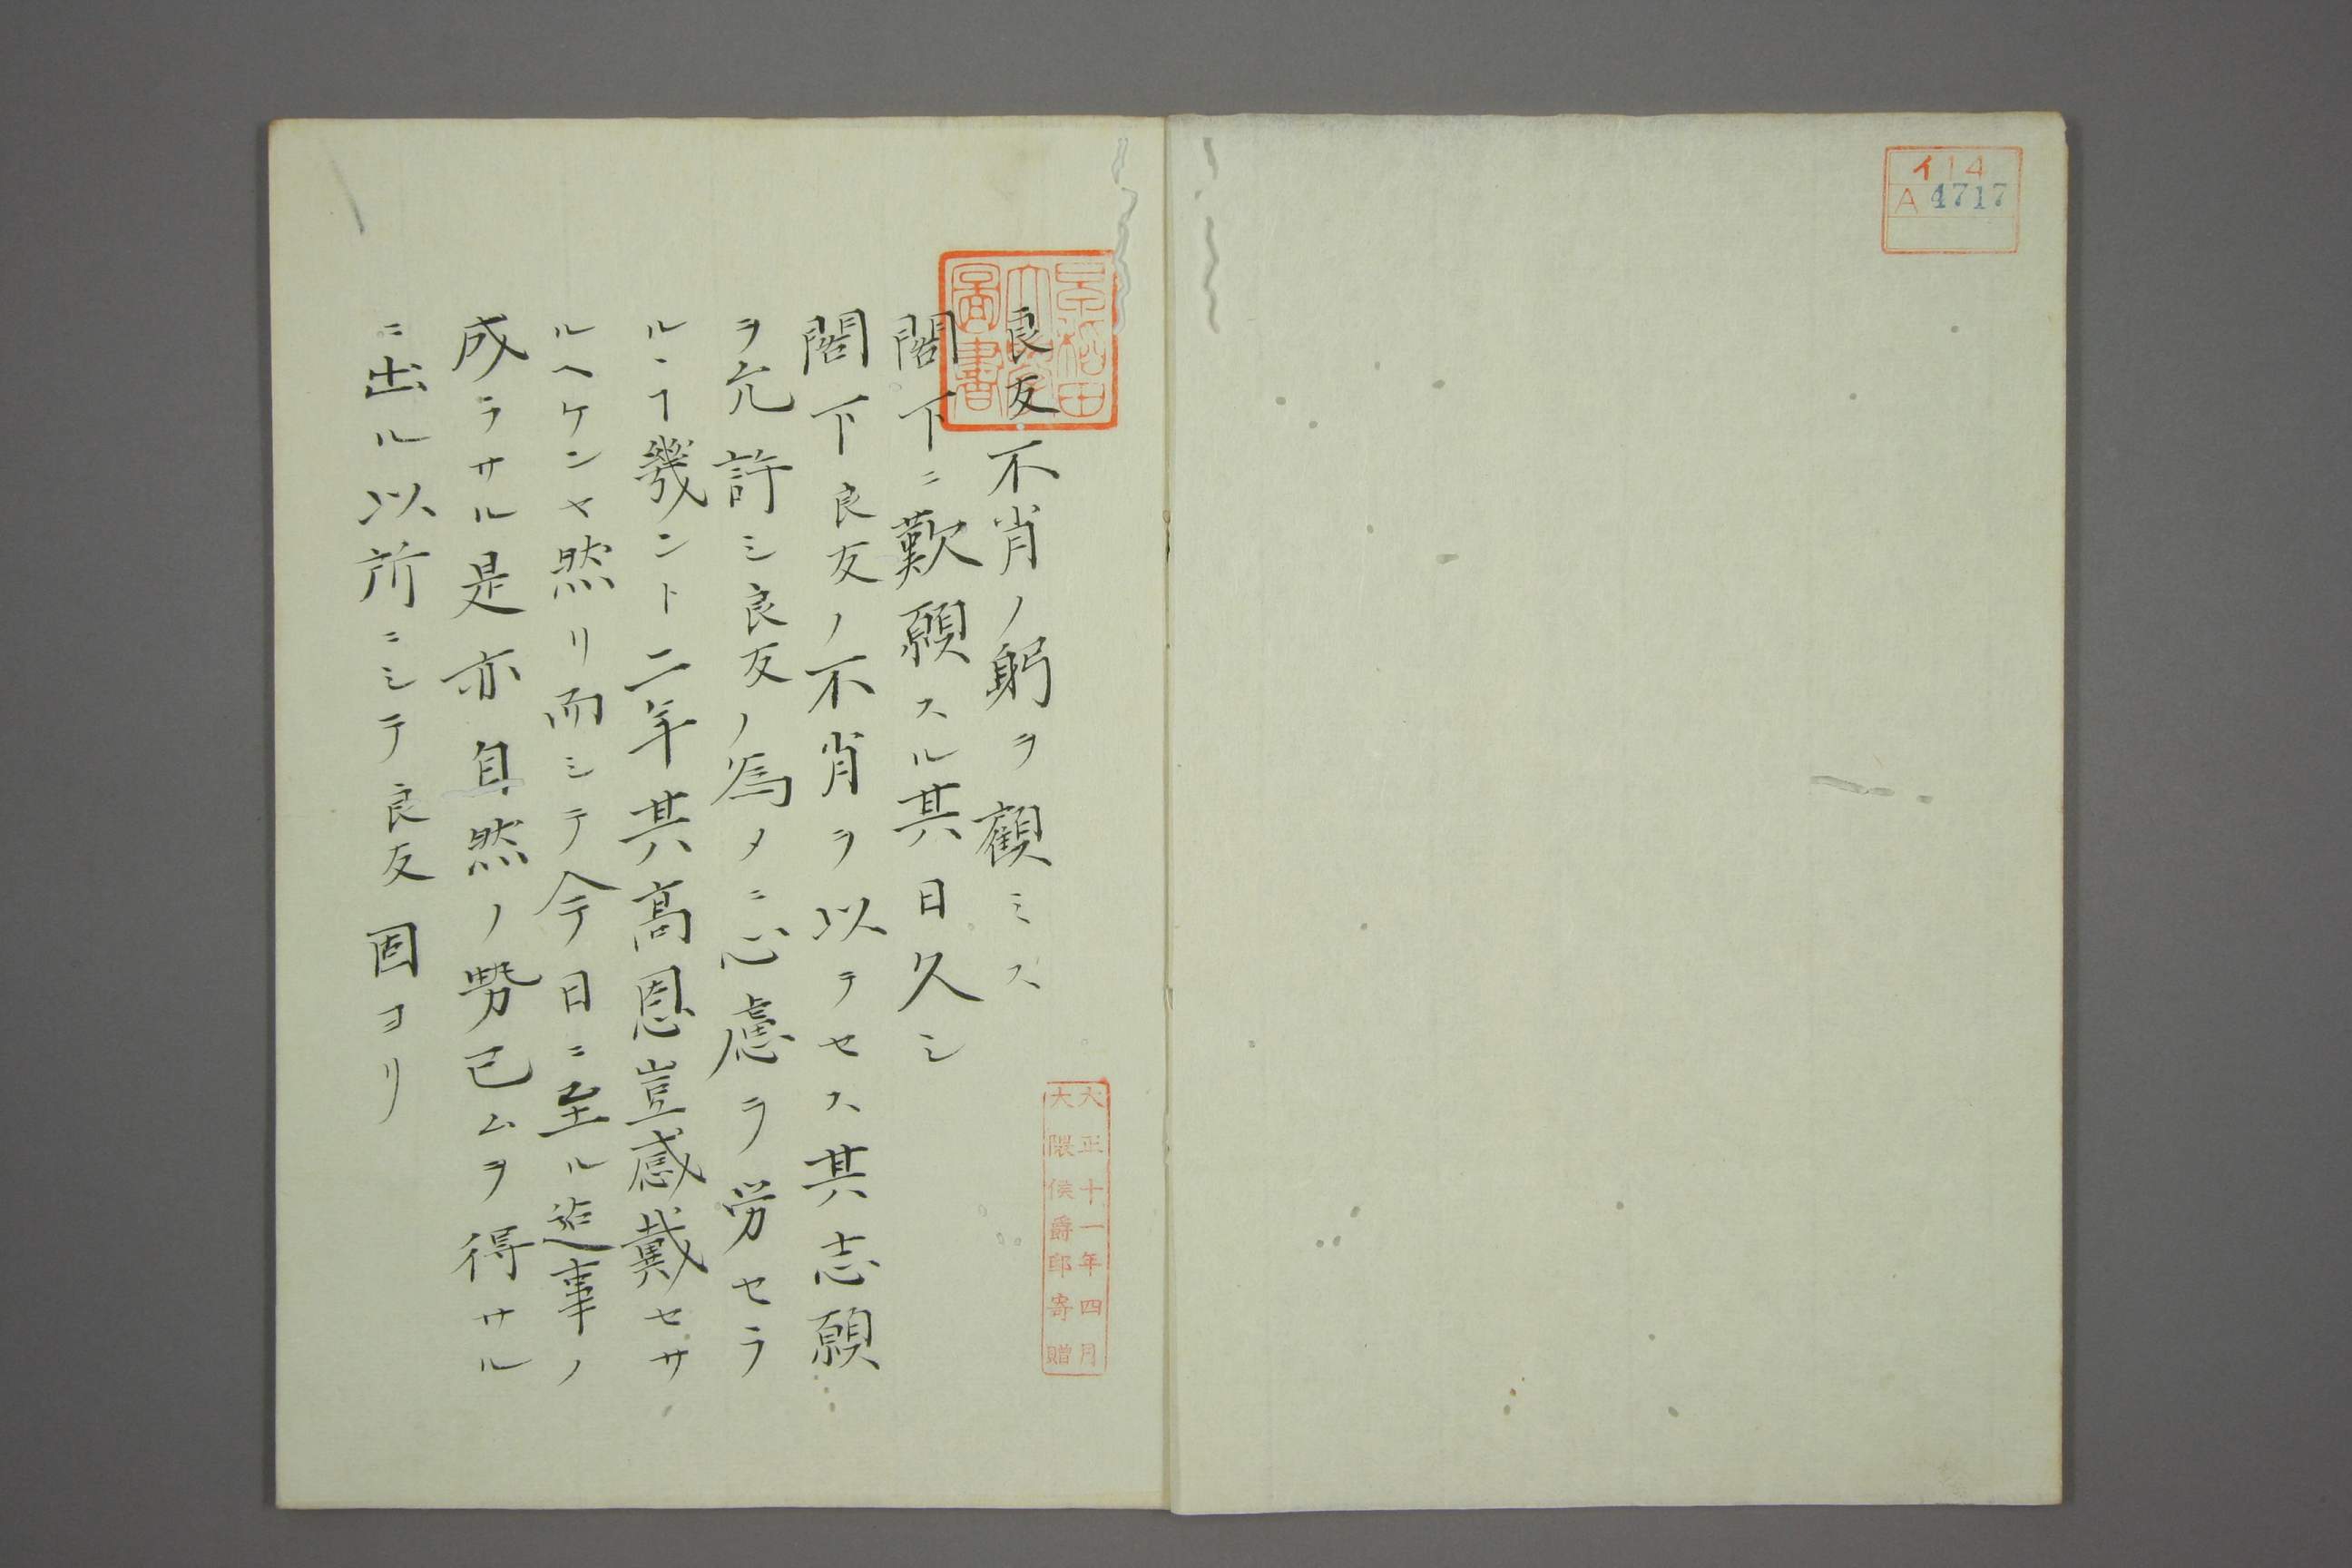 イ14
A 4717
早稲田大学図書
良友不肖ノ躬ヲ顧ミス
閣下ニ歎願スル其日久シ
閣下良友ノ不肖ヲ以テセス其志願
ヲ允許シ良友ノ為メニ心慮ヲ労セラ
ルヽヿ幾ント二年其高恩豈感戴セサ
ルヘケンヤ然リ而シテ今日ニ至ル迠事ノ
成ラサル是亦自然ノ勢已ムヲ得サル
ニ出ル以所ニシテ良友固ヨリ
大正十一年四月
大隈侯爵邸寄贈